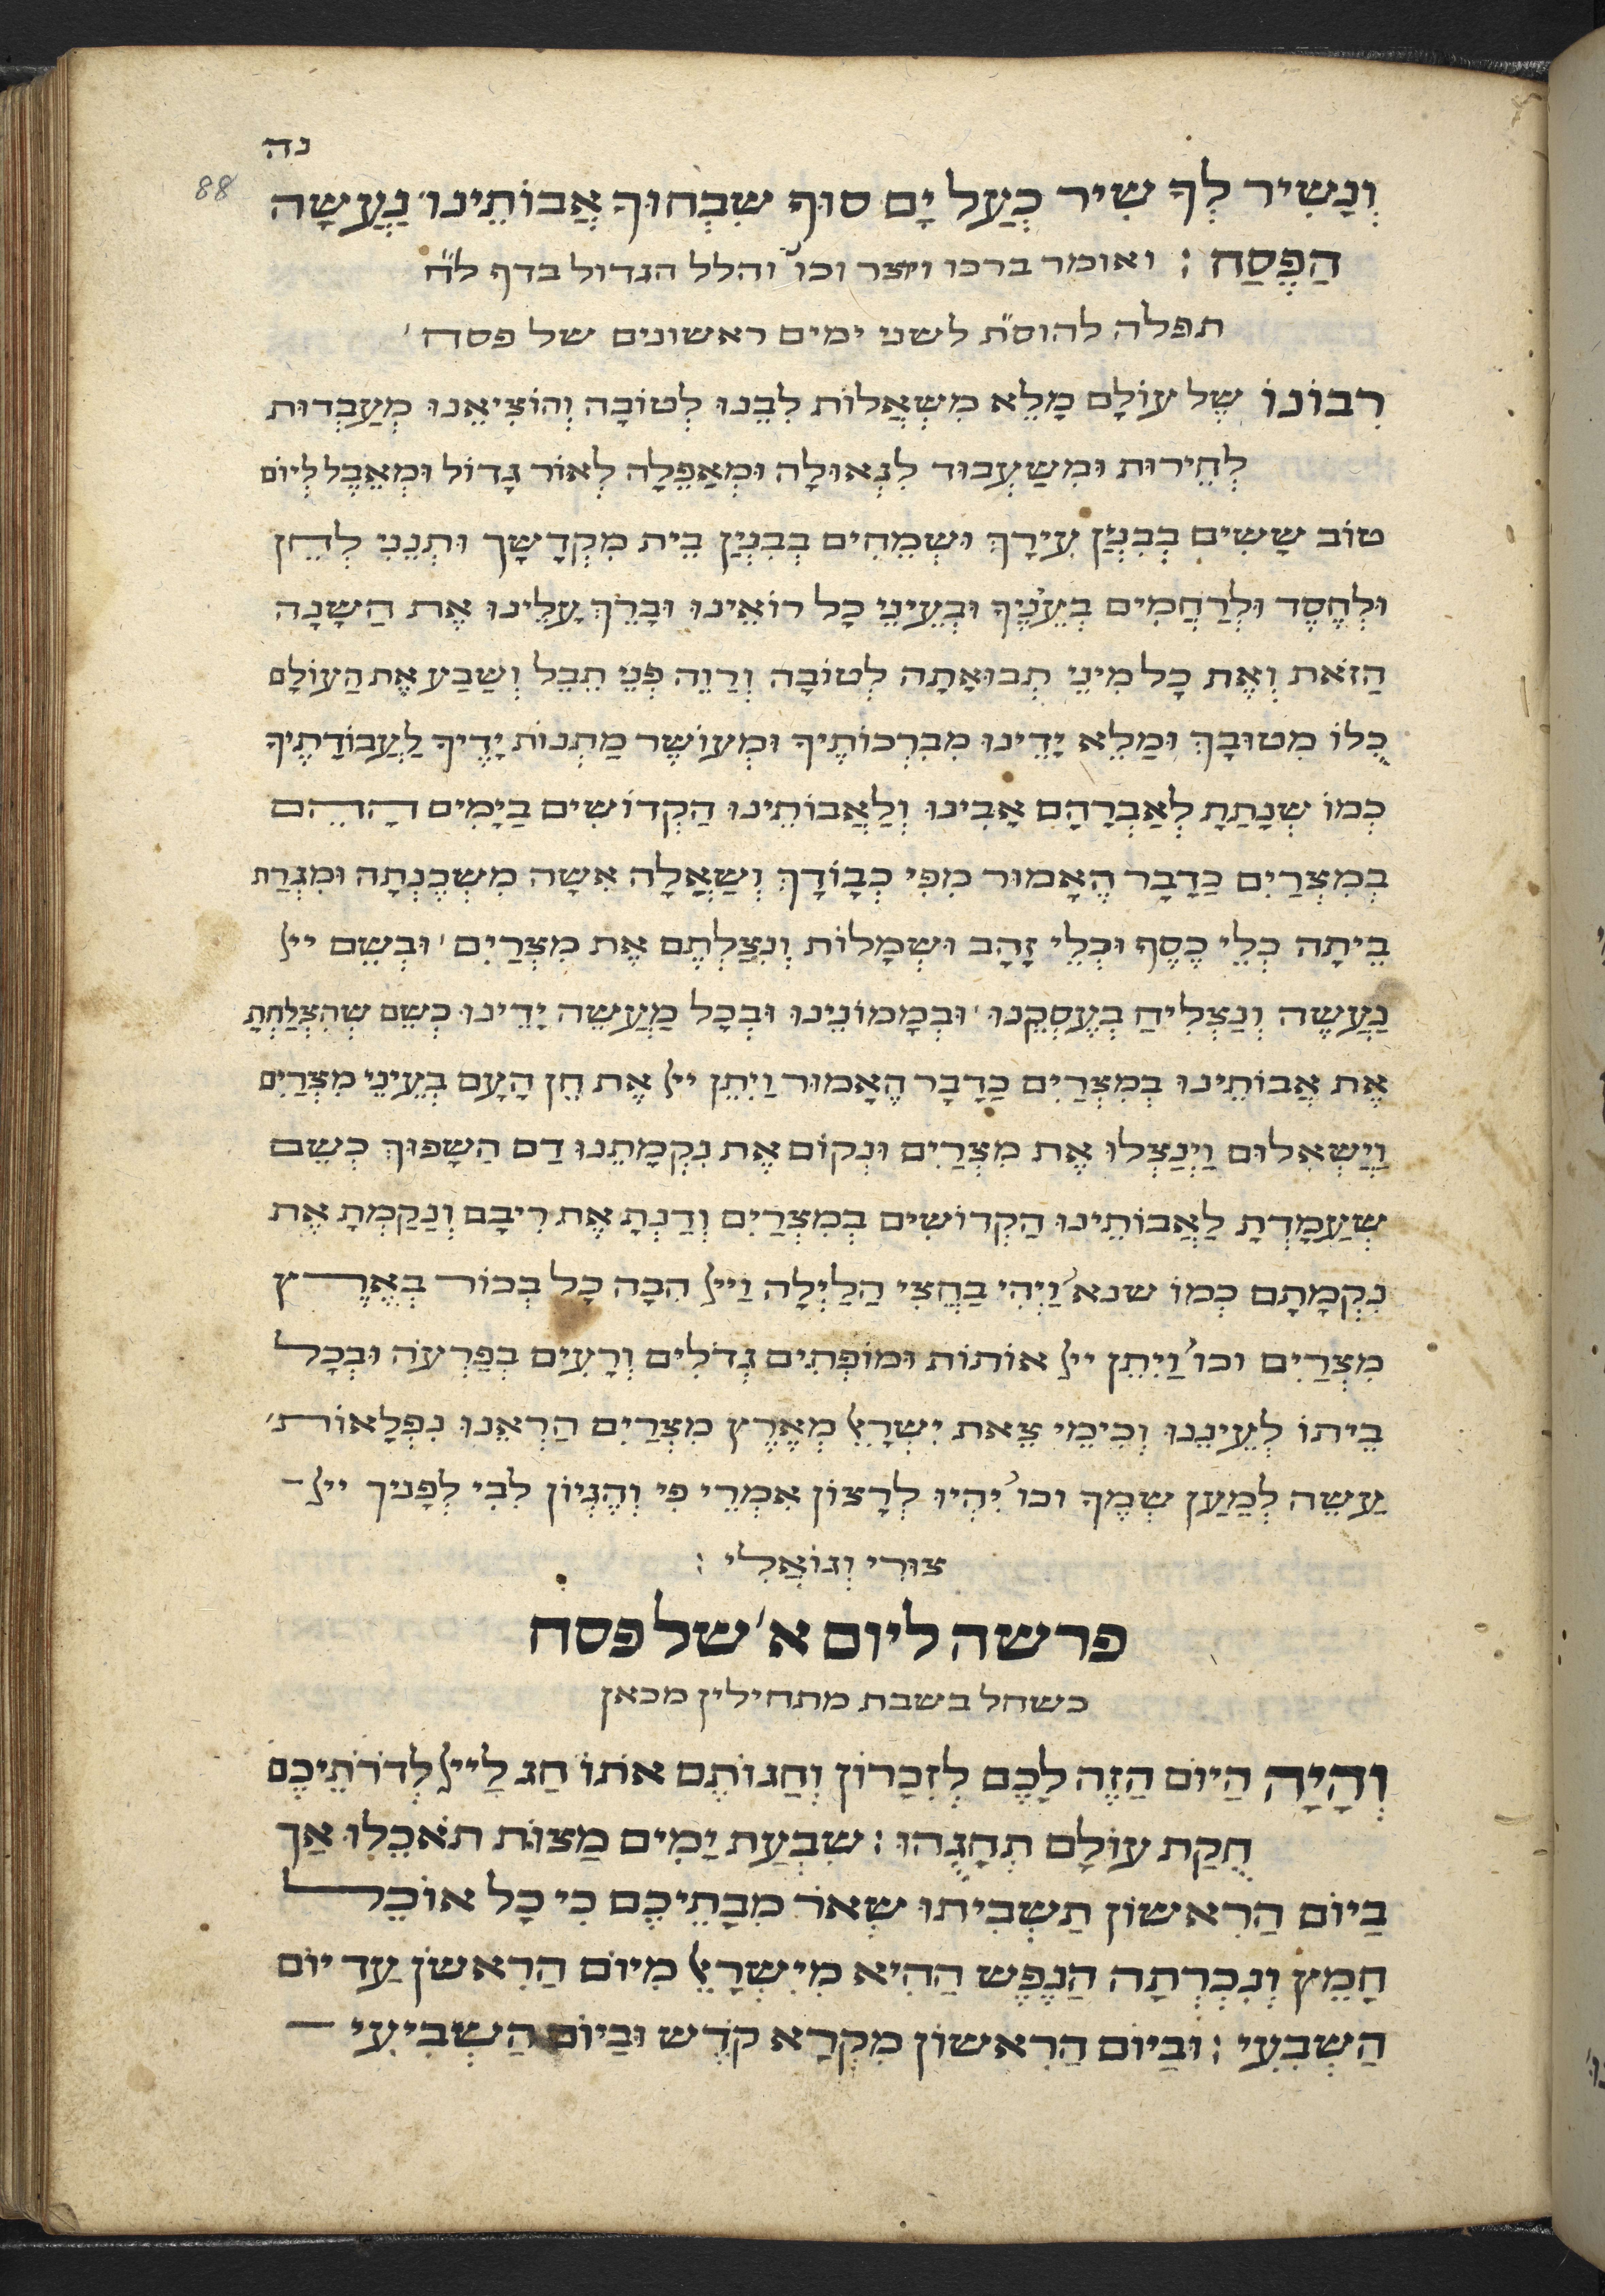 נה
88
וְנָשִׁיר לְךָ שִׁיר כְּעַל יָם סוּף שִׁבְּחוּךָ אֲבוֹתֵינוּ׳ נַעֲשָׂה
הַפֶּסַח : ואומר ברכו ויוצר וכו׳ והלל הגדול בדף ל״ח
תפלה להוס״ת לשני ימים ראשונים של פסח ׳
רִבוֹנוֹ שֶׁל עוֹלָם מָלֵא מִשְׁאֲלוֹת לִבֵּנוּ לְטוֹבָה וְהוֹצִיאֵנוּ מְעַבְדוּת
לְחֵירוּת וּמִשַׁעְבּוּד לִגְאוּלָה וּמְאַפֵלָה לְאוֹר גָדוֹל וּמְאֵבֶל לְיוֹם
טוֹב שָׂשִׂים בְּבִנְיַן עִירָךְ וּשְׂמֵחִים בְּבִנְיַן בֵּית מִקְדָשָׁךְ וּתְנֵנִי לְחֵן
וּלְחֶסֶד וּלְרַחֲמִים בְּעֵנֶיךָ וּבְעֵינֵי כָל רוֹאֵינוּ וּבָרֵךְ עָלֵינוּ אֶת הַשָׁנָה
הַזֹאת וְאֶת כָּל מִינֵי תְבוּאָתָה לְטוֹבָה וְרַוֵה פְּנֵי תֵבֵל וְשַׂבַּע אֶת הַעוֹלָם
כֻּלוֹ מִטוּבָךְ וּמַלֵא יָדֵינוּ מִבִרְכוֹתֶיךָ וּמְעוֹשֶׁר מַתְנוֹת יָדֶיךָ לַעֲבוֹדָתֶיךָ
כְּמוֹ שְׁנָתַתָ לְאַבְרָהָם אָבִינוּ וְלַאֲבוֹתֵינוּ הַקְדוֹשִׁים בַּיָמִים הָהֵם
בְּמִצְרַיִם כַּדָבָר הֶאָמוּר מִפִּי כְבוֹדָךְ וְשַׁאֲלָה אִשָׁה מִשְׁכֶנְתָּה וּמִגְרַת
בֵּיתָה כְּלֵי כֶסֶף וּכְלֵי זָהָב וּשְׂמָלוֹת וְנִצַלְתֶּם אֶת מִצְרַיִם ׳ וּבְשֵׁם ייל
נַעֲשֶׂה וְנַצְלִיחַ בְּעֶסְקֵנוּ ׳ וּבְמָמוֹנֵינוּ וּבְכָל מַעֲשֵׂה יָדֵינוּ כְּשֵׁם שְׁהִצְלַחְתָּ
אֶת אֲבוֹתֵינוּ בְּמִצְרַיִם כַּדָבָר הֶאָמוּר וַיִתֵּן ייל אֶת חֵן הָעָם בְּעֵינֵי מִצְרַיִם
וַיַשְׁאִלוּם וַיְנַצְלוּ אֶת מִצְרַיִם וּנְקוֹם אֶת נִקְמָתֵנוּ דַם הַשָׁפוּךְ כְּשֵׁם
שְׁעַמָדְתָּ לַאֲבוֹתֵינוּ הַקְדוֹשִׁים בְּמִצְרַיִם וְדַנְתָּ אֶת רִיבָם וְנָקַמְתָּ אֶת
נִקְמָתָם כְּמוֹ שנא׳ וַיְהִי בַּחֲצִי הַלַיְלָה וַייל הִכָּה כָּל בְּכוֹר בְּאֶרֶץ
מִצְרַיִם וכו׳ וַיִתֵּן ייל אוֹתוֹת וּמוֹפְתִים גְדֹלִים וְרָעִים בְּפַרְעֹה וּבְכָל
בֵּיתוֹ לְעֵינֵנוּ וְכִימֵי צֵאת יִשְׂרָאֵל מְאֶרֶץ מִצְרַיִם הַרְאֵנוּ נִפְלָאוֹת׳
עֲשֵׂה לְמַעַן שְׁמֶךָ וכו׳ יִהְיוּ לְרָצוֹן אִמְרֵי פִי וְהֶגְיוֹן לִבִּי לְפָנֶיךָ ייל־
צוּרִי וְגוֹאֲלִי :
פרשה ליום א׳ של פסח
כשחל בשבת מתחילין מכאן
וְהָיָה הַיוֹם הַזֶה לָכֶם לְזִכָּרוֹן וְחַגוֹתֶם אֹתוֹ חַג לַייל לְדֹרֹתֵיכֶם
חֻקַת עוֹלָם תְּחָגֻהוּ : שִׁבְעַת יָמִים מַצוֹת תֹּאכֵלוּ אַךְ
בַּיוֹם הַרִאשׁוֹן תַּשְׁבִּיתוּ שְׂאֹר מִבָּתֵיכֶם כִּי כָּל אוֹכֵל
חָמֵץ וְנִכְרְתָה הַנֶפֶשׁ הַהִיא מִיִשְׂרָאֵל מִיוֹם הַרִאשֹׁן עַד יוֹם
הַשְׁבִעִי : וּבַיוֹם הַרִאשׁוֹן מִקְרָא קֹדֶשׁ וּבַיוֹם הַשְׁבִיעִי ־